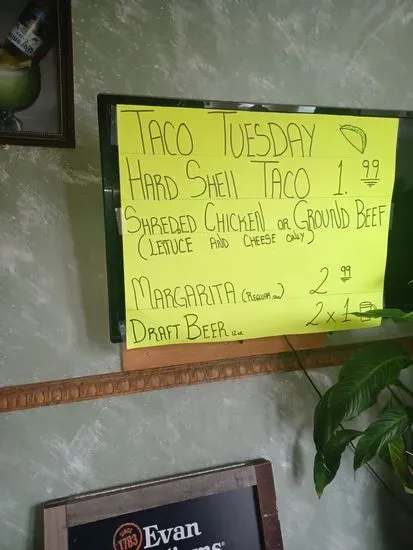 TACO TUESDAY
HARD SHELL TACO 1.99
SHREDED CHICKEN OR GROUND BEEF
(LETTUCE AND CHEESE ONLY)
MARGARITA (REGULAR 12oz) 2 99
DRAFT BEER 12oz 2x1
SINCE 1783
Evan